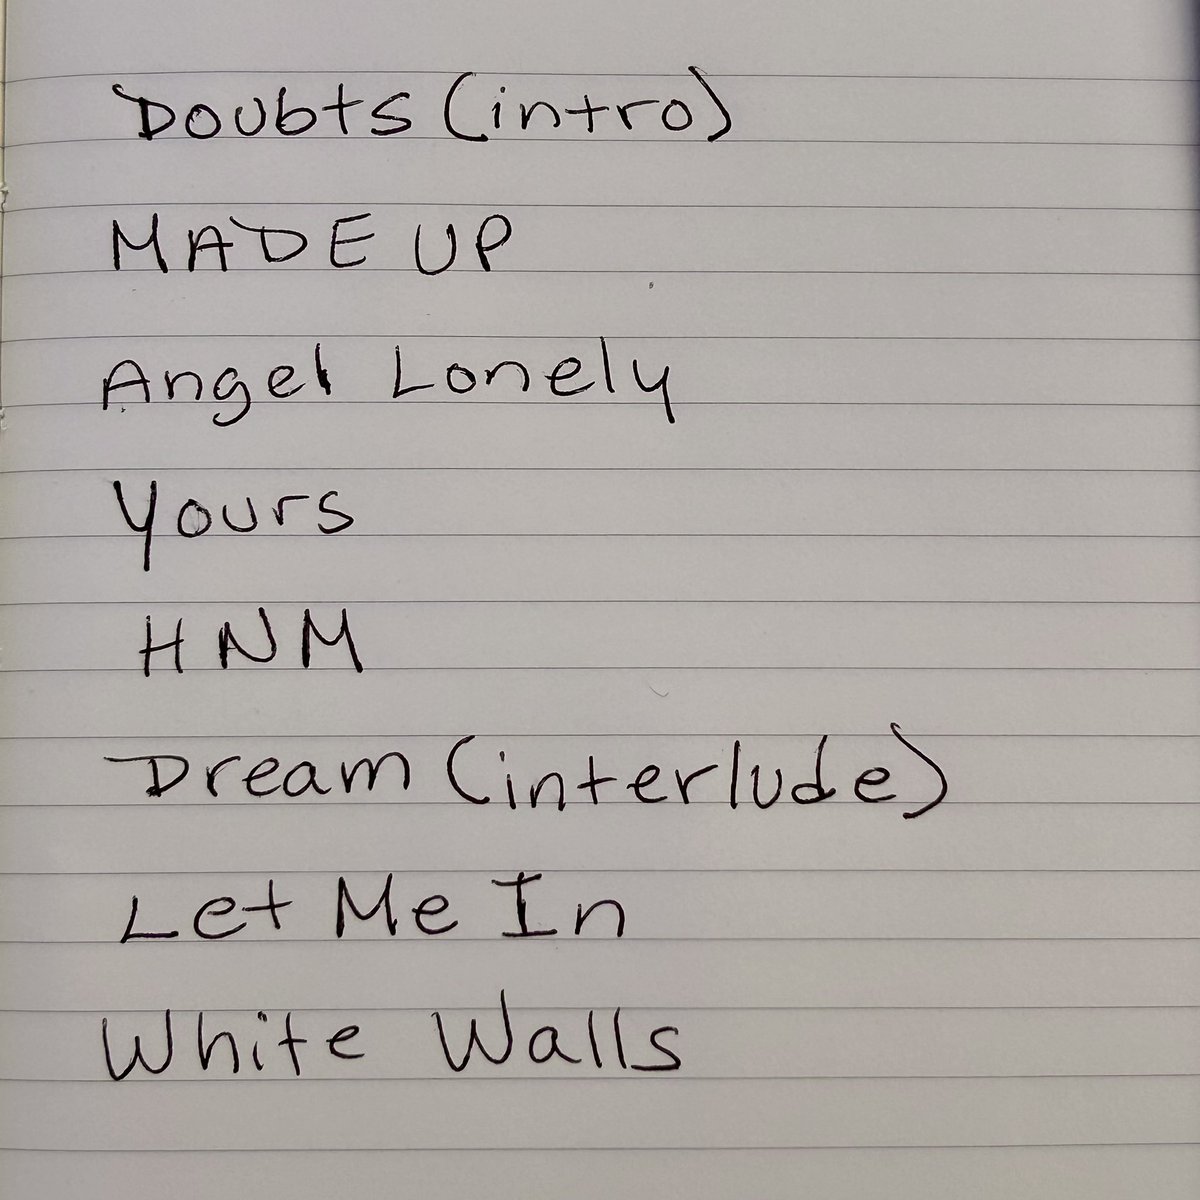 Doubts (intro)
MADE UP
Angel Lonely
Yours
HNM
Dream (interlude)
Let Me In
White Walls